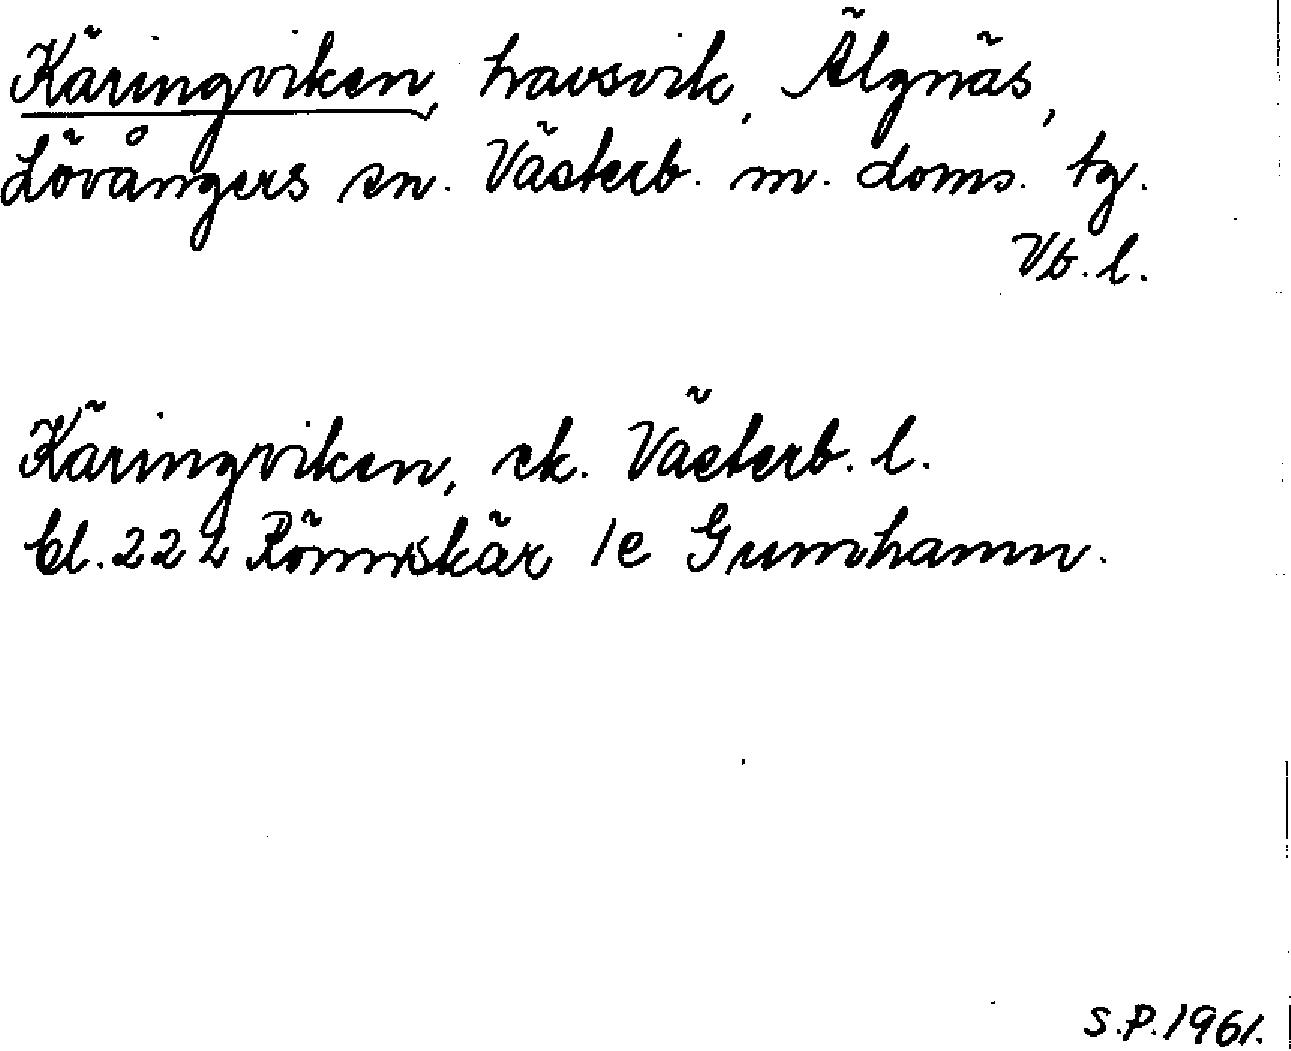 Käringviken, havsvik, Älgnäs,
Lövångers sn. Västerb. m. doms. tg.
Vb. l.
Käringviken, ek. Västerb. l.
bl. 22 L Rönnskär 1e Gumhamn.
S.P. 1961.